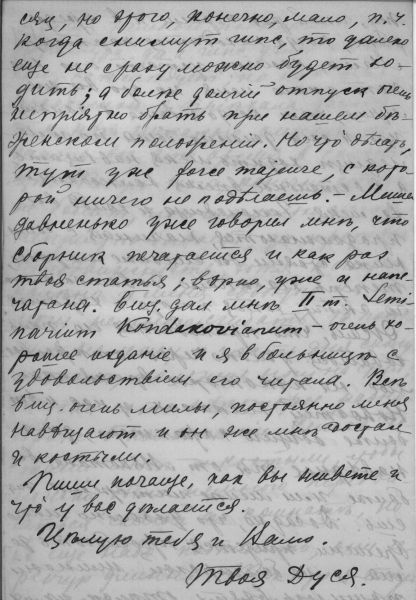 сяц, но этого, конечно, мало, п. ч.
когда снимут гипс, то далеко
еще не сразу можно будет хо-
дить; а более долгий отпуск очень
непріятно брать при нашем бѣ-
женском положеніи. Но что дѣлать,
тут уже force majeure, с кото-
рой ничего не подѣлаешь. – Миша
давненько уже говорил мнѣ, что
сборник печатается и как раз
твоя статья; вѣрно, уже и напе-
чатана. Биц. дал мнѣ II т. Semi-
narium Kondakovianum – очень хо-
рошее изданіе и я в больницѣ с
удовольствіем его читала. Всѣ
Биц. очень милы, постоянно меня
навѣщают и он же мнѣ достал
и костыли.
Пиши почаще, как вы живете и
что у вас дѣлается.
Цѣлую тебя и
Твоя Дуся.